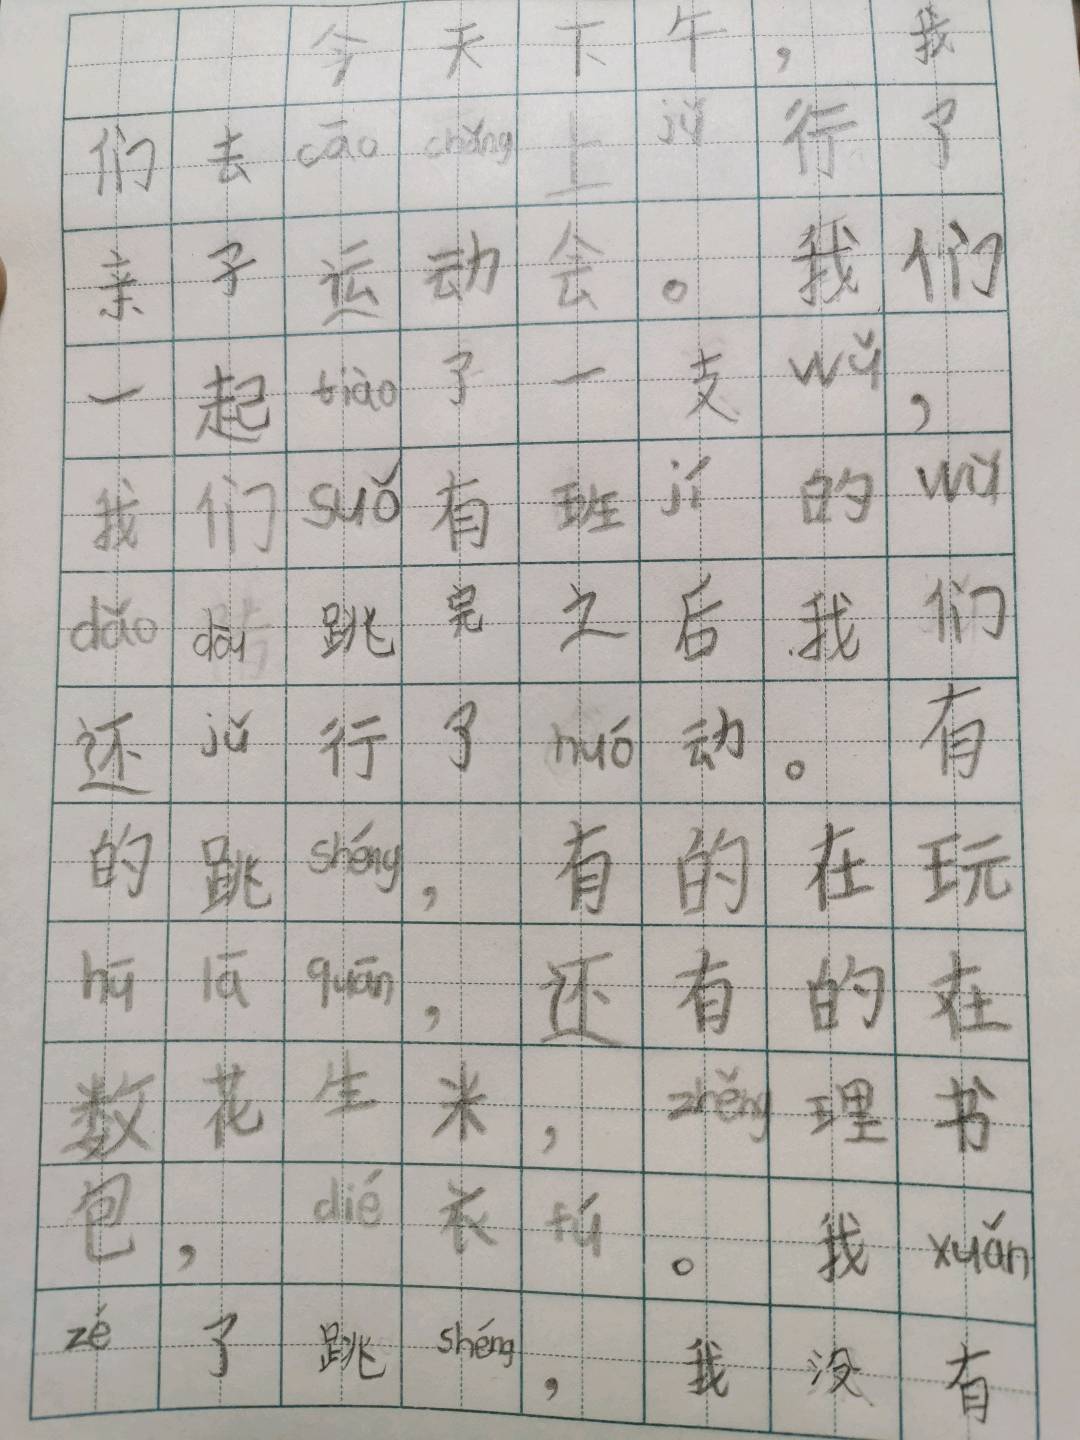 今天下午，我
们去cāo chǎng上jǔ行了
亲子运动会。我们
一起tiào了一支wǔ，
我们suǒ有班jí的wǔ
dǎo dōu跳完之后我们
还jǔ行了huó动。有
的跳shéng，有的在玩
hū lā quān，还有的在
数花生米，zhěng理书
包，dié衣fú。我xuǎn
zé了跳shéng，我没有